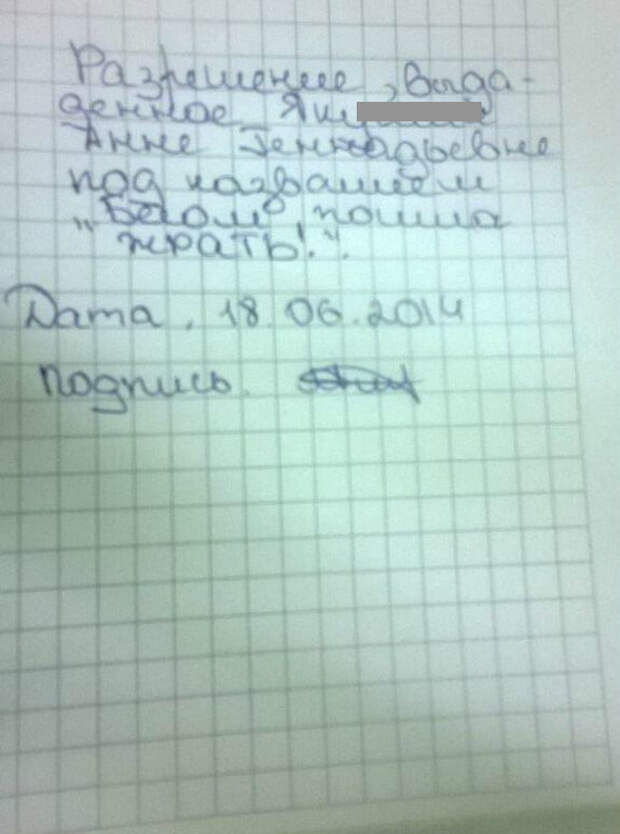 Разрешение, выда-
денное Яку
Анне Геннадьевне
под названием
„Бегом пошла
жрать!".
Дата. 18.06.2014
подпись.